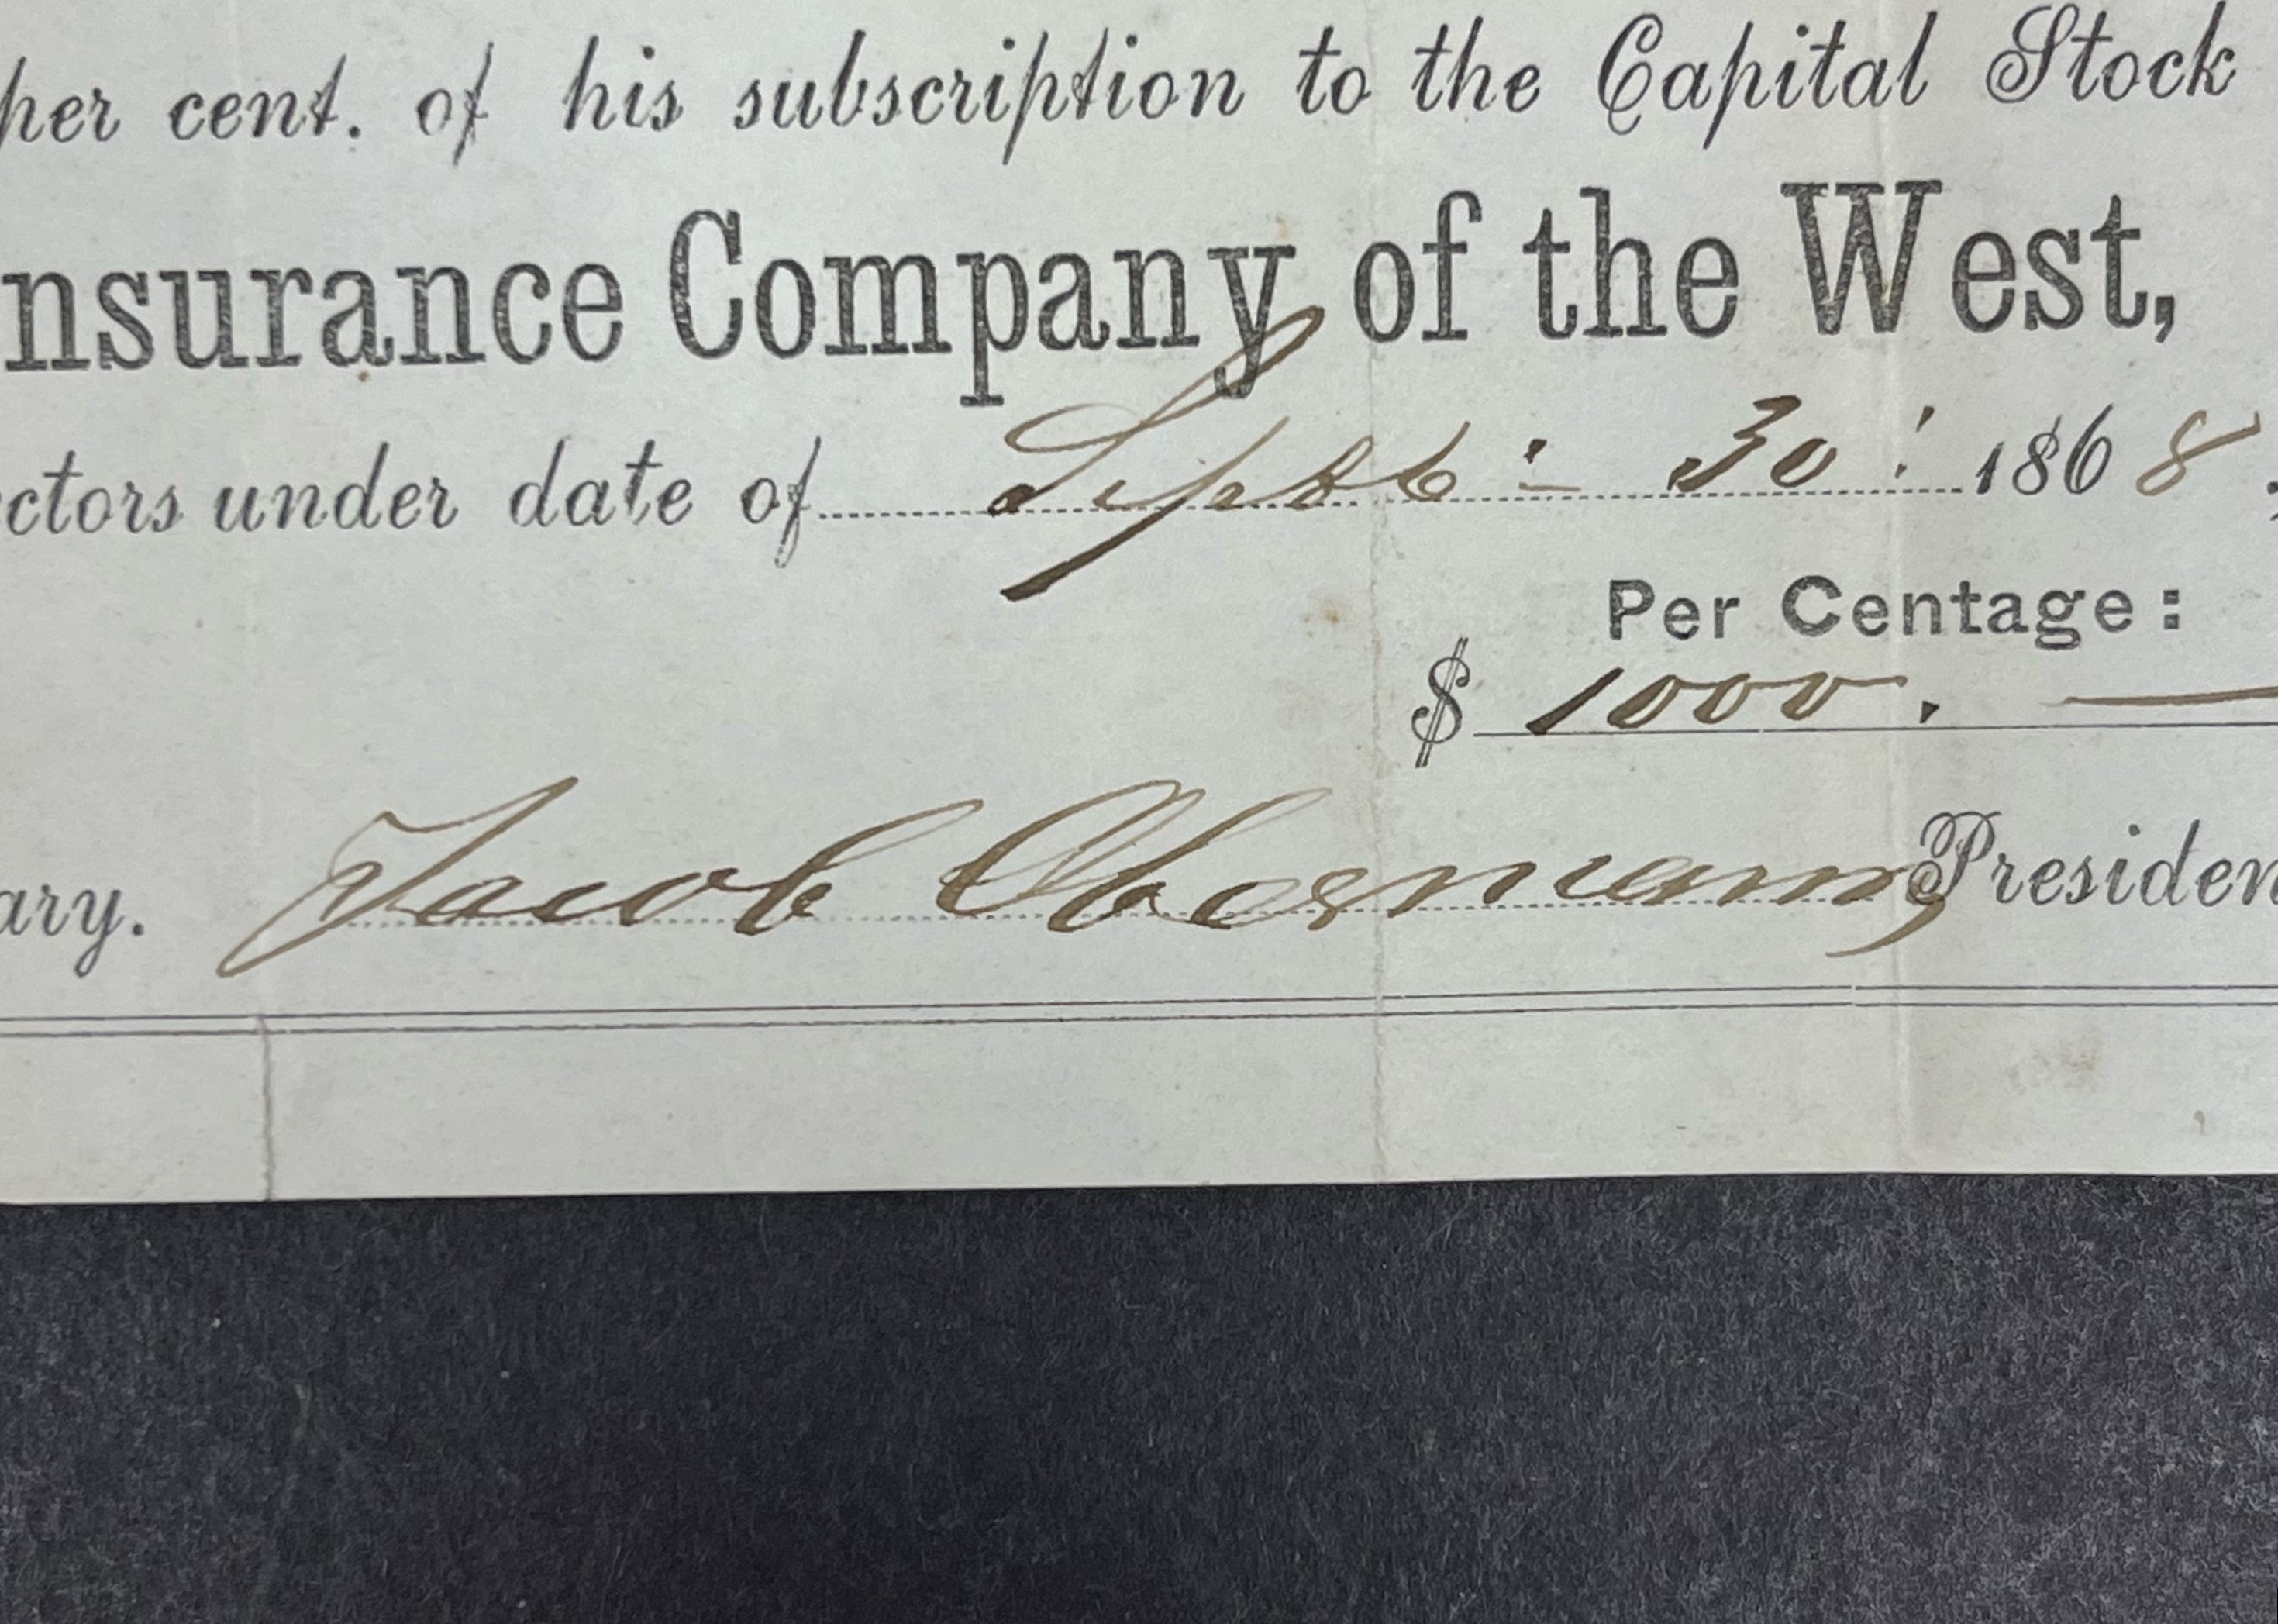 per cent. of his subscription to the Capital Stock
nsurance Company of the West,
ctors under date of Septb: 30: 1868.
Per Centage:
$ 1000. —
ary. Jacob Obermann Presiden